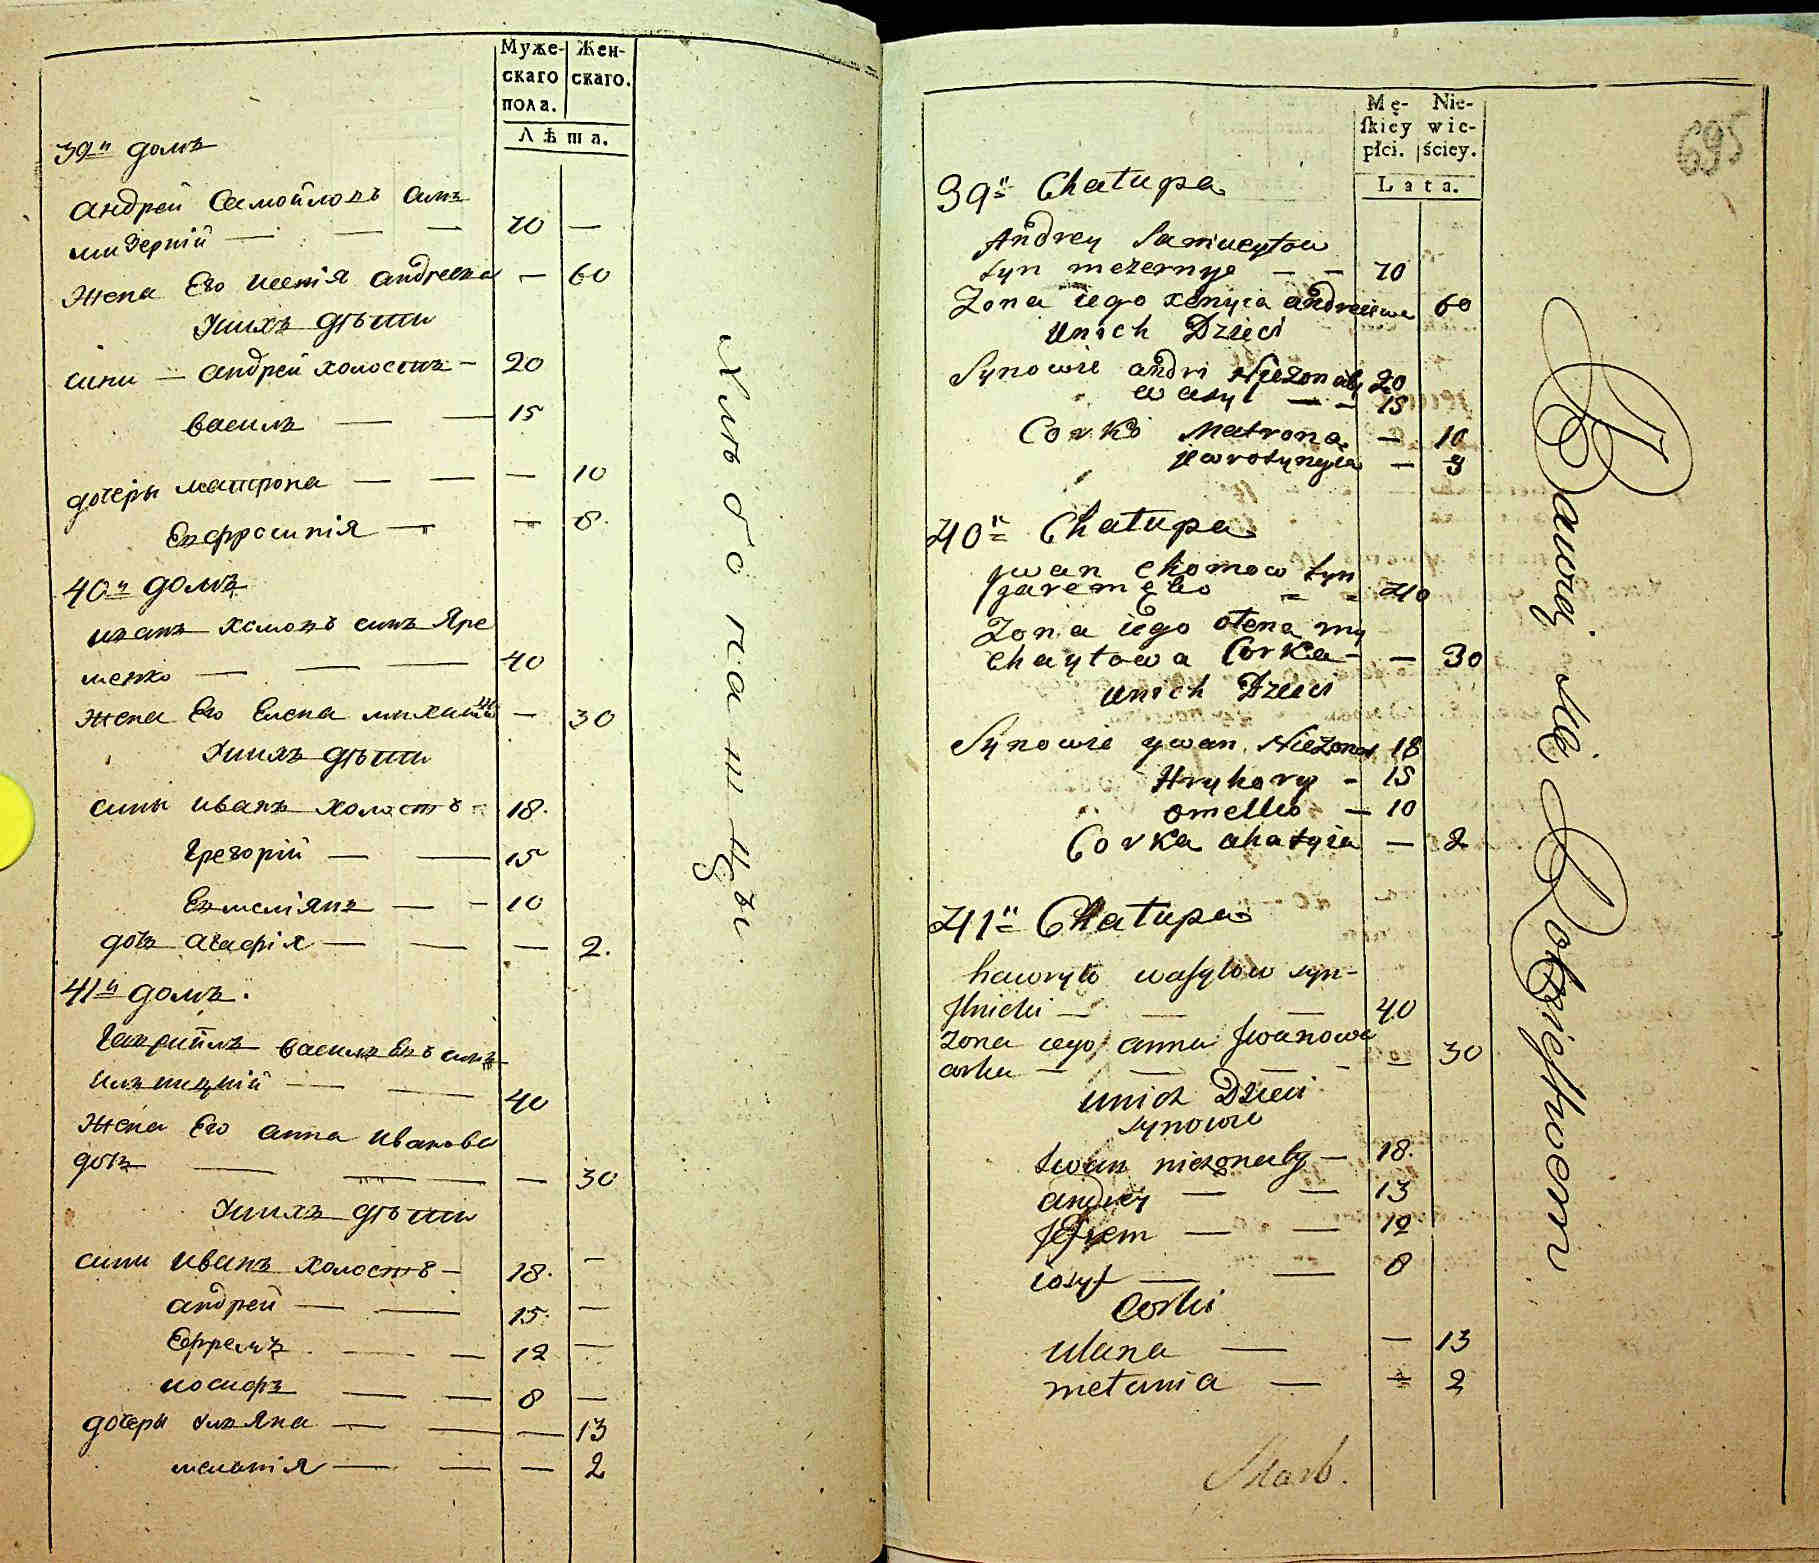 Муже-
скаго
пола.
Жен-
скаго.
Лѣта.
39й домъ
Андрей Самойловъ синъ
мизерній — — — 70 —
Жена Его Ксенія андреева — 60
Унихъ дѣти
сини — андрей холостъ — 20
василъ — — 15
дочеры матрона — — — 10
Евфросинія — — 8.
40й домъ
иванъ хомовъ синъ Яре
менко — — — 40
Жена Его Елена михайло — 30
Унихъ дѣти
сины иванъ холостъ 18.
Григорій — — 15
Емеліянъ — — 10
дочь агафія — — — 2.
41й домъ.
Гаврийлъ васильевъ синъ
илъницкій — — 40
Жена Его анна иванова
дочъ — — — — 30
Унихъ дѣти
сини иванъ холостъ — 18. —
андрей — — 15. —
Ефремъ — — 12 —
иосифъ — — 8 —
дочеры улъяна — — — 13
меланія — — — 2
хлѣбопашцы
Mę-
ſkiey
płci.
Nie-
wie-
ściey.
Lata.
695
39й Chałupa
Andrey Samueyłow
syn mezernyi — — 70
Zona iego xenyia andreiewa 60
unich Dzieci
Synowie andri Niezonaty 20
wasyl — — 15
Corki Matrona — 10
jewrosynyia — 8
40й Chałupa
jwan chomow syn
jaremęko 40
Zona iego ołena my
chayłowa Corka — — 30
unich Dzieci
Synowie ywan Niezonat 18
Hryhory — 15
omelko — 10
Corka ahafyia — 2
41й Chałupa
hawryło wasylow syn
Jlnicki — — — 40
Zona iego anna Jwanowa
corka — — — — 30
unich Dzieci
synowie
Iwan niezonaty — 18.
andrey — — 13
Jefrem — — 12
iosyf — — 8
Corki
ulana — — 13
mełania — — 2
Skarb.
Bawią się Rolnictwem